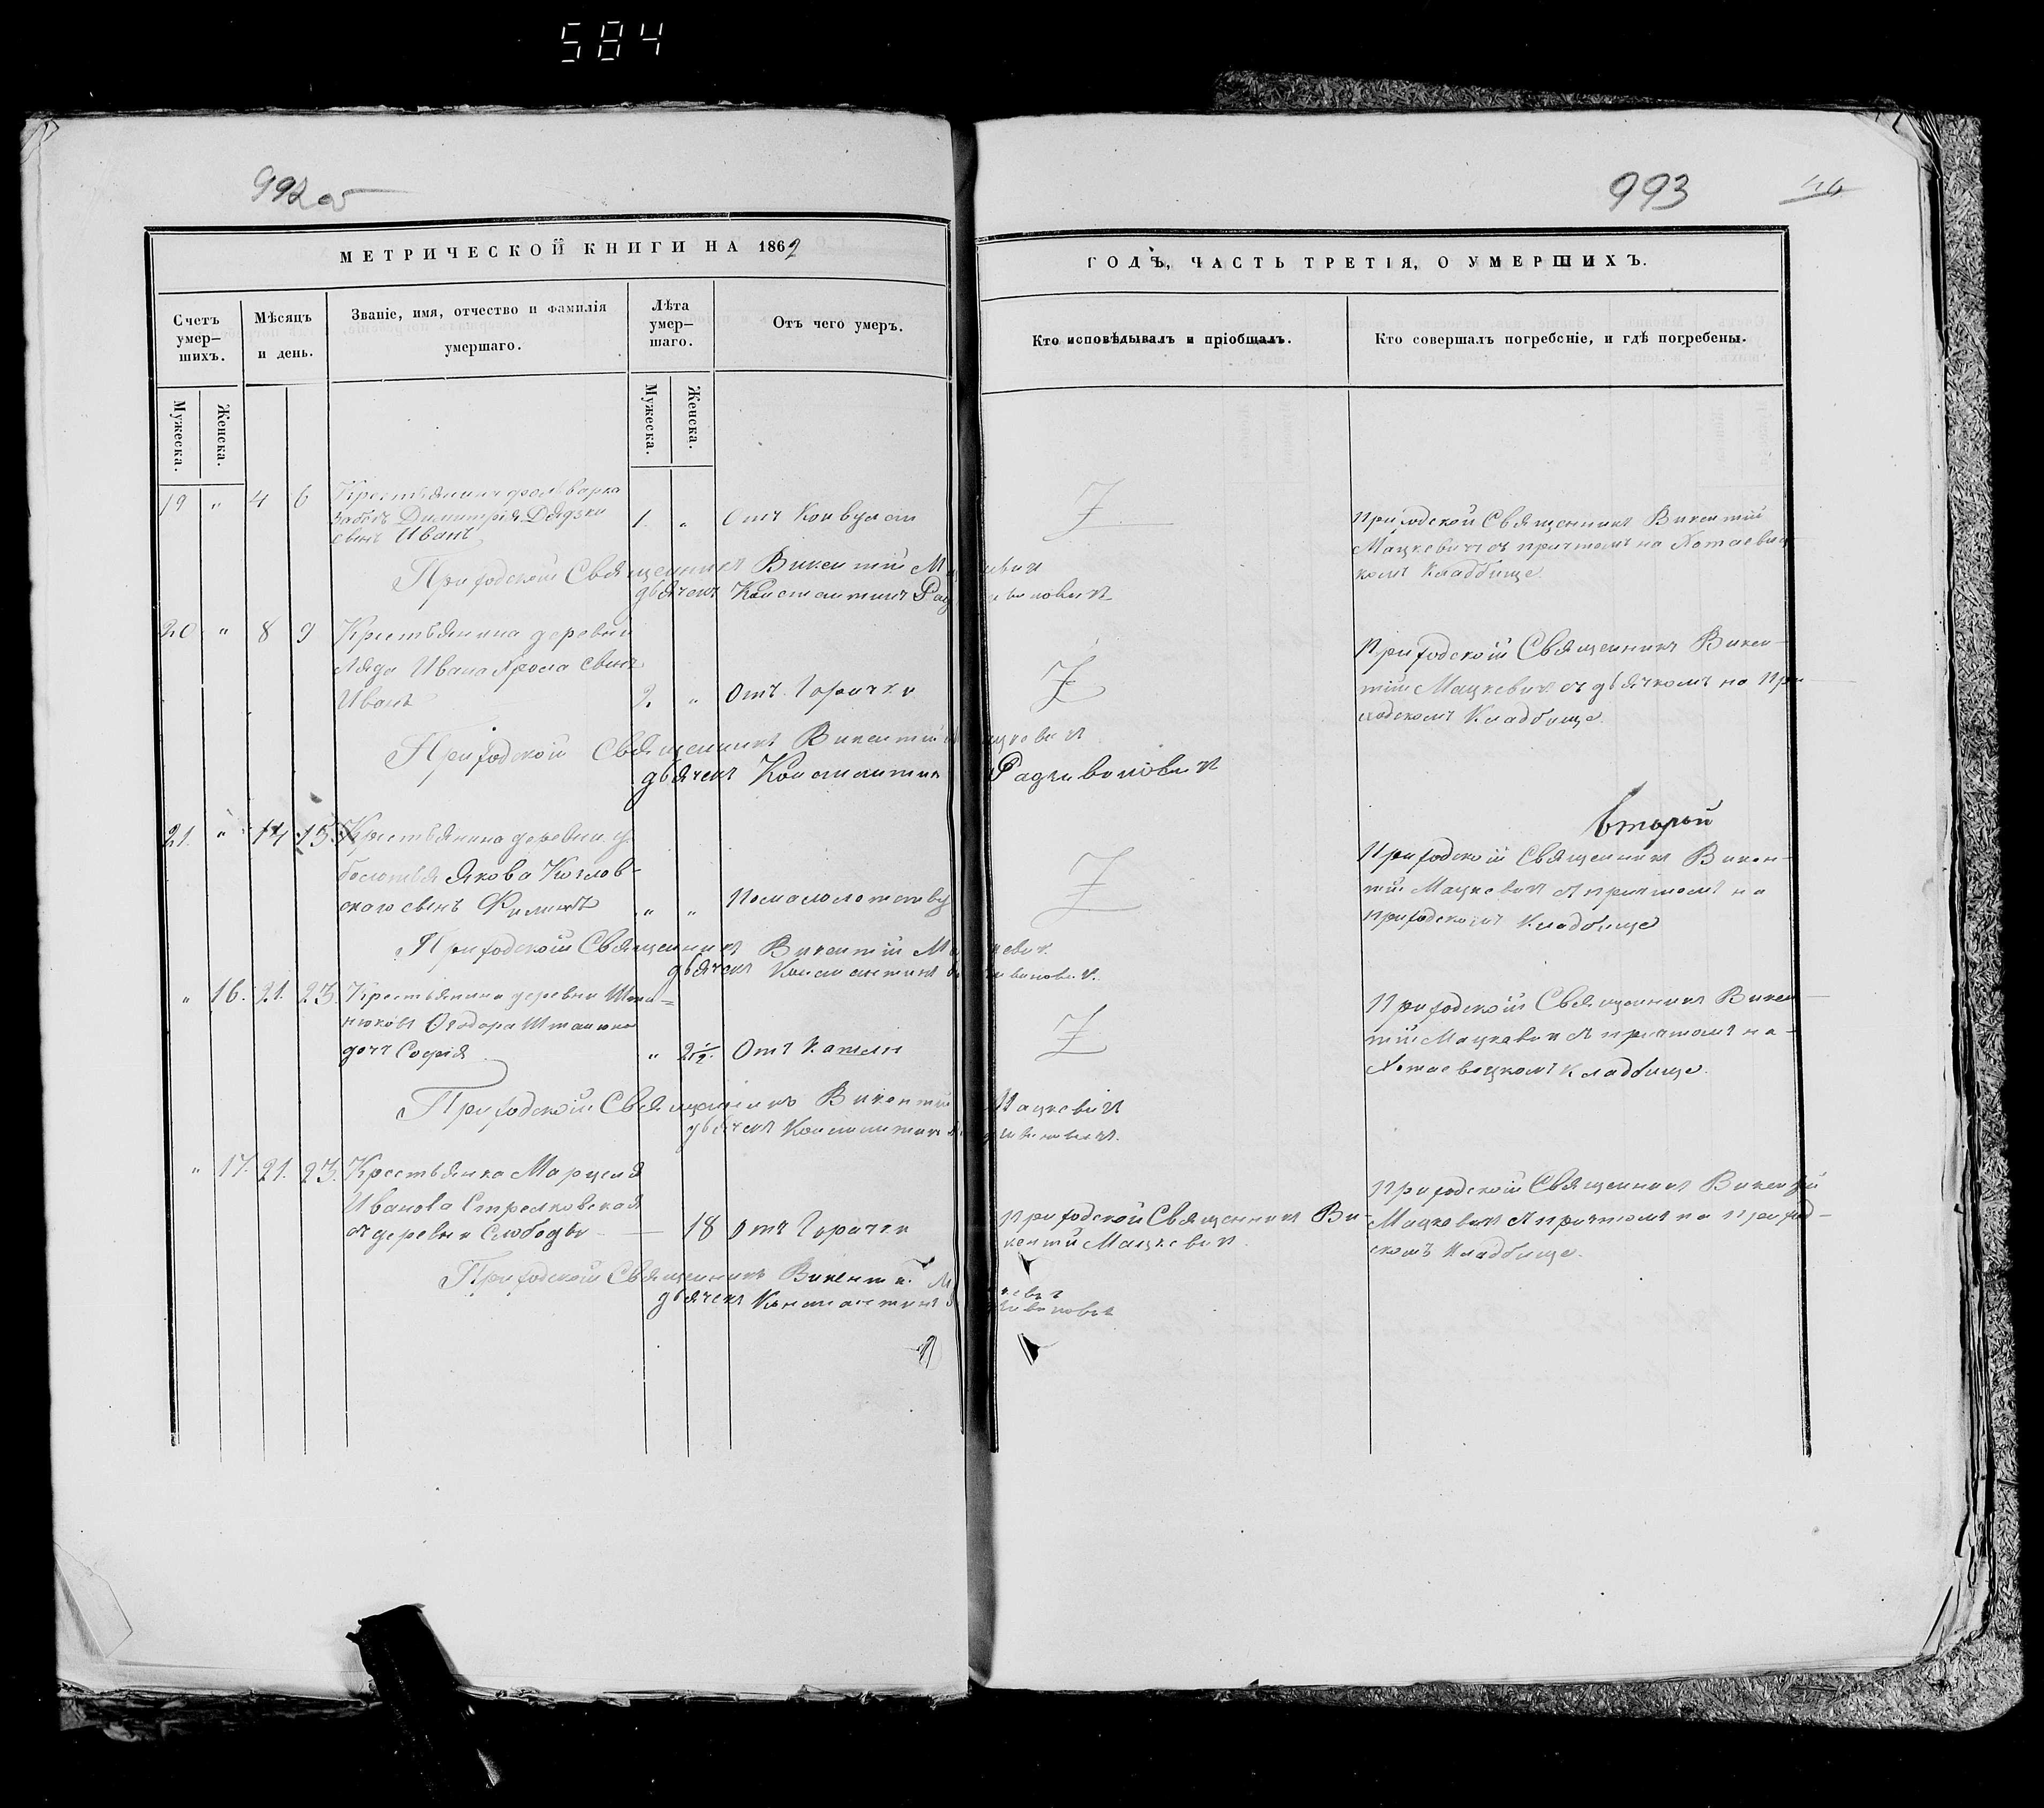 584
992 об
993
МЕТРИЧЕСКОЙ КНИГИ НА 1862
ГОДЪ, ЧАСТЬ ТРЕТІЯ, О УМЕРШИХЪ.
Счетъ умер–шихъ.
Мѣсяцъ и день.
Званіе, имя, отчество и фамилія умершаго.
Лѣта умер–шаго.
Отъ чего умеръ.
Кто исповѣдывалъ и пріобщалъ.
Кто совершалъ погребеніе, и гдѣ погребены.
Мужеска.
Женска.
Мужеска.
Женска.
19 „ 4 6 Крестьянина фольварка
Димитрія Дядзки
сынъ Иванъ
1. „ Отъ Конвульси
Приходской Священникъ Викентій
Мацкевичъ съ причтомъ на Хотаевиц
комъ Кладбище.
Приходской Священникъ Викентій Мацкевичъ
дьячекъ Константинъ Радзивиновичъ
20 „ 8 9 Крестьянина деревни
Ляды Ивана Хрома сынъ
Иванъ
2. „ Отъ Горячки
Приходской Священникъ Викен–
тій Мацкевичъ съ дьячкомъ на При
ходскомъ Кладбище.
Приходской Священникъ Викентій Мацкевичъ
дьячекъ Константинъ Радзивиновичъ
второй
21. „ 14 15 Крестьянина деревни
Якова Козлов–
скаго сынъ Филипъ
„ „ По малолетству
Приходской Священникъ Викен–
тій Мацкевичъ съ причтомъ на
приходскомъ Кладбище
Приходской Священникъ Викентій Мацкевич.
дьячекъ Константинъ Радзивинович.
„ 16. 21. 23. Крестьянина деревни Шта=
нюковъ Ѳеодора Штанюка
дочь Софія
„ 2 1/2. Отъ Кашли
Приходской Священникъ Викен
тій Мацкевичъ съ причтомъ на–
Хотаевецкомъ Кладбище.
Приходской Священникъ Викентій Мацкевичъ
дьячекъ Константинъ Радзивиновичъ.
„ 17. 21. 23. Крестьянка Марцеля
Иванова Стрелковская
съ деревни Слободы
— 18 Отъ Горячки
Приходской Священникъ Ви–
кентій Мацкевичъ
Приходской Священникъ Викентій
Мацкевичъ съ причтомъ на приход–
скомъ Кладбище.
Приходской Священникъ Викентій Мацкевичъ
дьячекъ Константинъ Радзивиновичъ